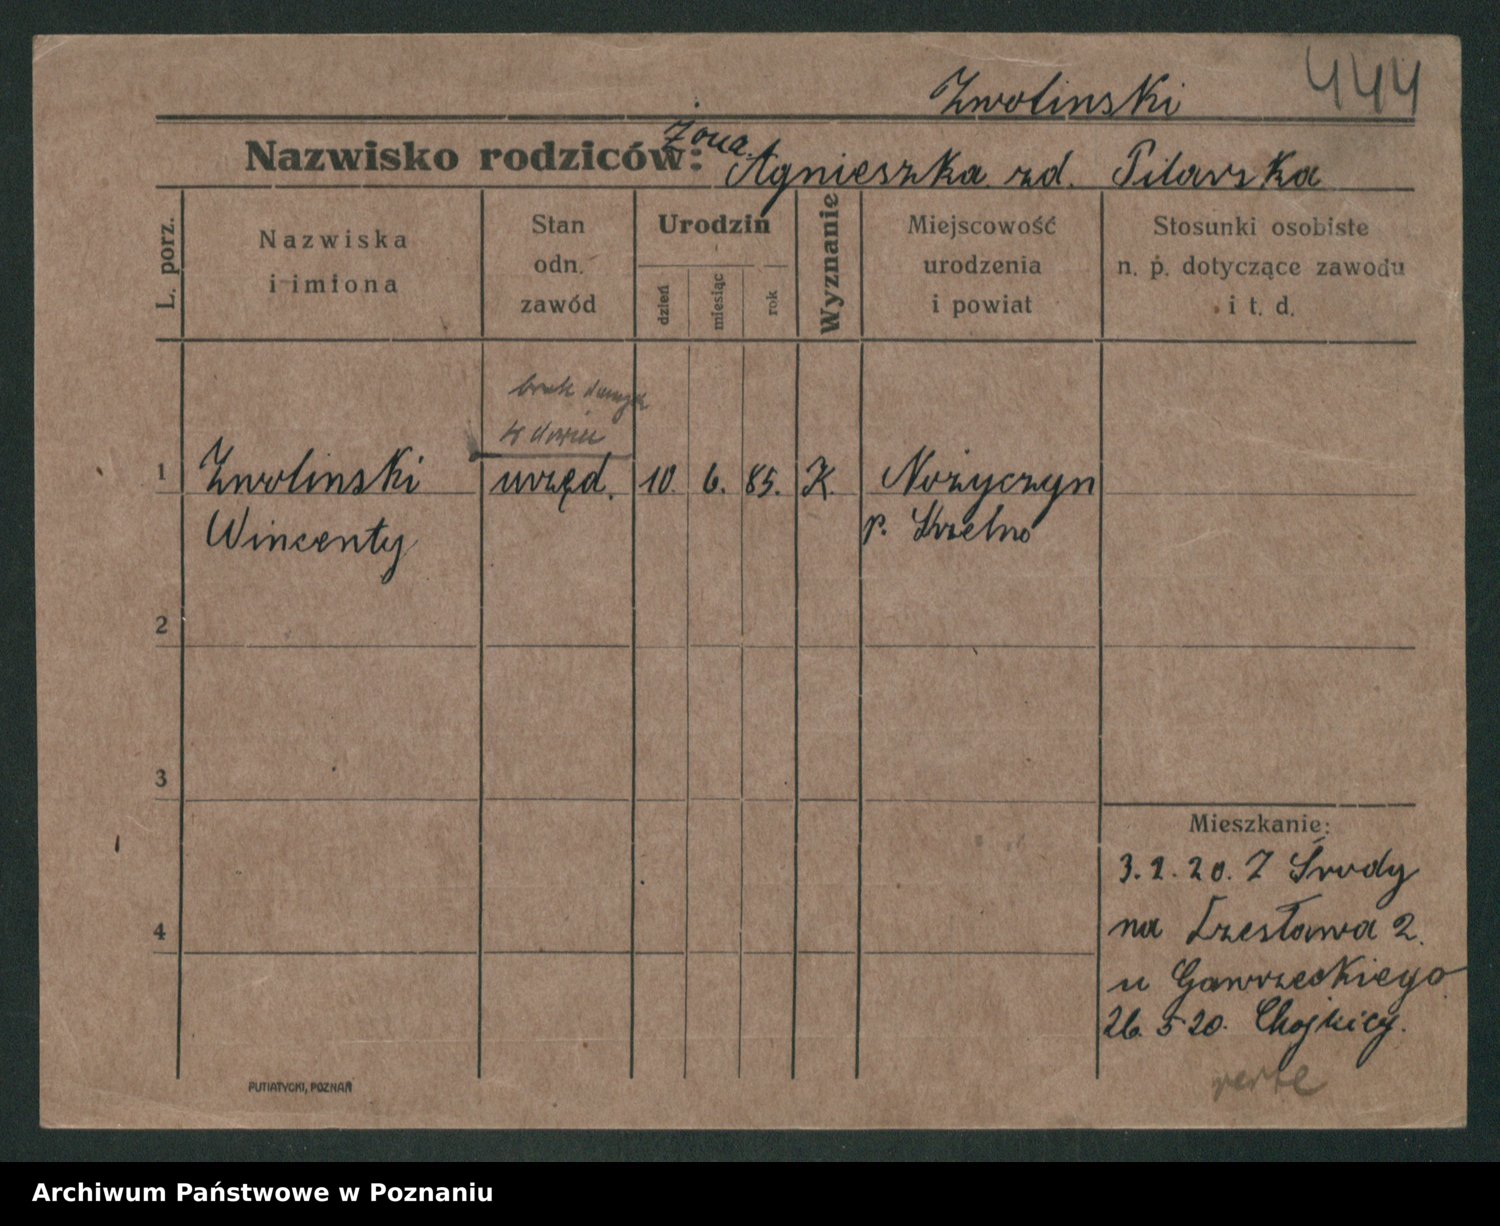 Zwolinski 444
Żona
Nazwisko rodziców: Agnieszka zd. Pilarska
L. porz.
Nazwiska
i imiona
Stan
odn.
zawód
Urodzin
dzień
miesiąc
rok
Wyznanie
Miejscowość
urodzenia
i powiat
Stosunki osobiste
n. p. dotyczące zawodu
i t. d.
brak danych
1 Zwolinski urzęd. 10. 6. 85. K. Nożyczyn
Wincenty p. Strzelno
2
3
4
Mieszkanie:
3. 2. 20. Z Środy
na Czesława 2.
u Gawrzeckiego
26. 5 20.
verte
PUTIATYCKI, POZNAŃ
Archiwum Państwowe w Poznaniu